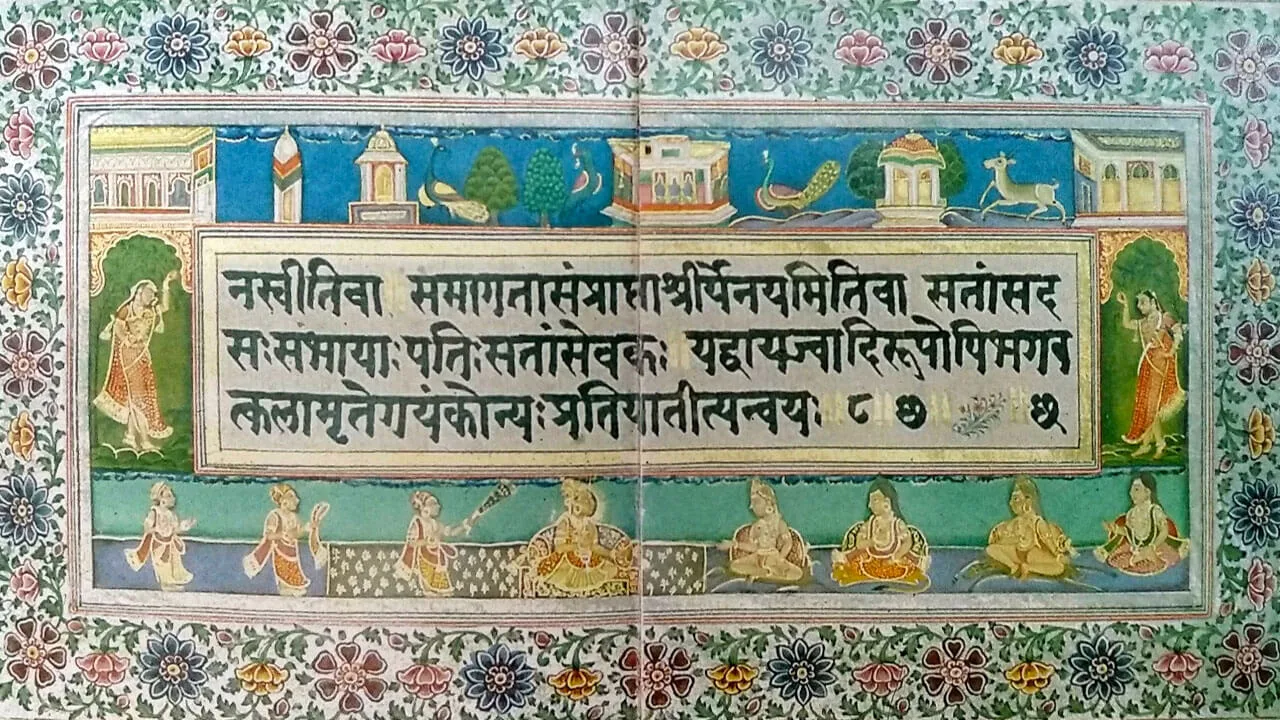 नस्वीतिवा समागतासंप्राप्ताश्रीर्येनयमितिवा सतांसद
सःसभायाःपतिःसतांसेवकः यद्वायज्वादिरूपोपिभगव
त्कलामृतेगयंकोन्यःप्रतियातीत्यन्वयः ८ छ छ